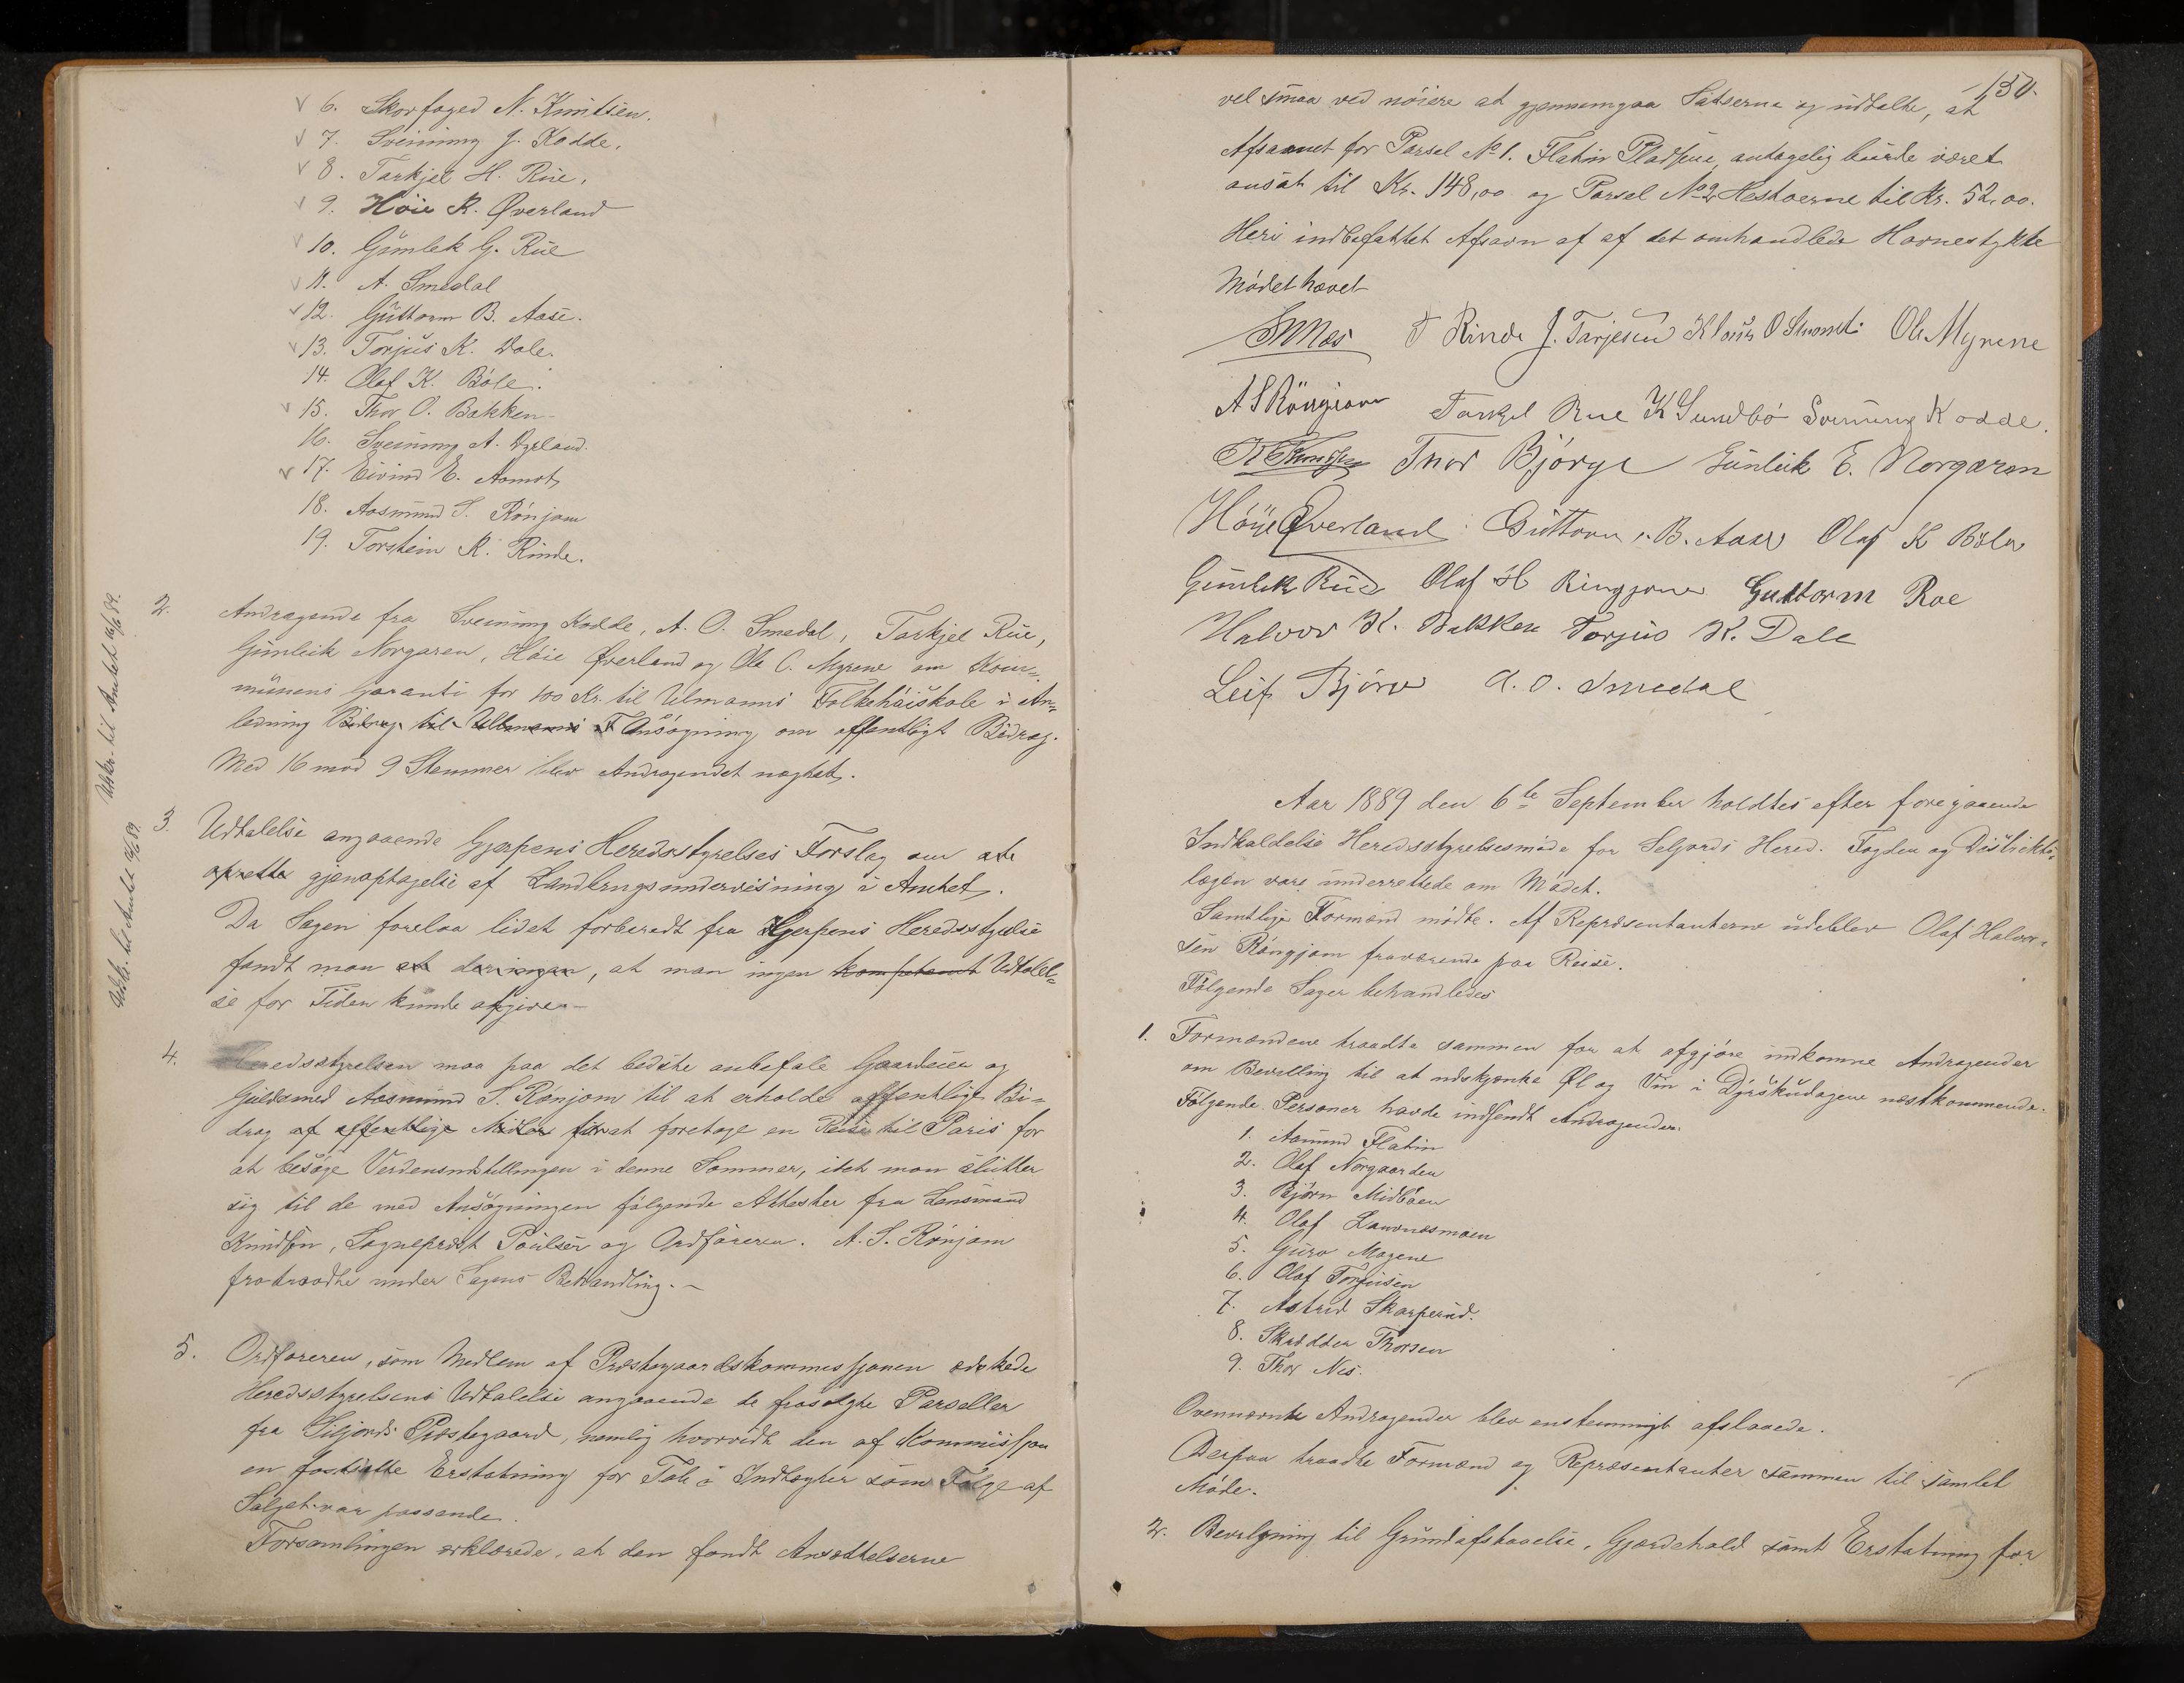 6. Skovfoged N. Knudsen.
7. Sveinung J. Kodde.
8. Tarkjel H. Rue.
9. Høie K. Øverland
10. Gunlek G. Rue
11. A. Smedal
12. Guttorm B. Aase.
13. Torjus K. Dale.
14. Olaf K. Bøle.
15. Thor O. Bakken
16. Sveinung A. Dyrland.
17. Eivind E. Aamot
18. Aasmund S. Rønjom
19. Torstein K. Rinde.
2. Andragende fra Sveinung Kodde, A. O. Smedal, Tarkjel Rue,
Gunleik Norgaren, Høie Øverland og Ole O. Myrene om Kom-
munens Garanti for 100 Kr. til Ulmanns Folkehøiskole i An-
ledning Bidrag til Ullmanns F Ansøgning om offentligt Bidrag.
Med 16 mod 9 Stemmer blev Andragendet nægtet.
Udskr. til Amtet 16/6 89.
3. Udtalelse angaaende Gjerpens Heredsstyrelses Forslag om at
oprette gjenoptagelse af Landbrugsundervisning i Amtet.
Da Sagen forelaa lidet forberedt fra Gjerpens Heredsstyrelse
fandt man at , at man ingen kompetent Udtalel-
se for Tiden kunde afgives
Udskr. til Amtet 16/6 89.
4. Heredsstyrelsen maa paa det bedste anbefale Gaardeier og
Guldsmed Aasmund S. Rønjom til at erholde offentlige Bi-
drag af offentlige Midler for at foretage en Reise til Paris for
at besøge Verdensudstillingen i denne Sommer, idet man slutter
sig til de med Ansøgningen følgende Attester fra Lensmand
Knudsen, Sogneprest Poulsen og Ordføreren. A. S. Rønjom
fratraadte under Sagens Behandling.
5. Ordføreren, som Medlem af Præstegaardskommissjonen æskede
Heredsstyrelsens Udtalelse angaaende de frasolgte Parseller
fra Siljords Præstegaard, namlig hvorvidt den af Kommissjon
en fastsatte Erstatning for Tab i Indtægter som Følge af
Salget var passende.
Forsamlingen erklærede, at den fandt Ansættelserne
130.
vel smaa ved nøiere at gjennemgaa Satserne og udtalte, at
Afsavnet for Parsel No 1. Flatin Pladsene, antagelig burde været
ansat til Kr. 148,00 og Parsel No 2 Hestøerne til Kr. 52,00.
Heri indbefattet Afsavn af af det omhandlede Havnestykke
Mødet hævet
T Rinde J. Tarjesen O Ole Myrene
A S Rönjom Tarkjel Rue K Sundbø Sveinung Kodde.
Thor Bjørge Gunleik E. Norgaren
Höye Øverland Guttorm B. Aase Olaf K Bøle
Gunlek Rue Olaf H Ringjom Guttorm Roe
Halvor K. Bakken Torjus K. Dale
Leif Bjørge A. O. Smedal
Aar 1889 den 6te September holdtes efter foregaaende
Indkaldelse Heredsstyrelsesmøde for Seljords Hered. Fogden og Distrikts-
lægen vare underrettede om Mødet.
Samtlige Formænd mødte. Af Repræsentanterne udeblev Olaf Halvor-
sen Røngjom fraværende paa Reise.
Følgende Sager behandledes
1. Formændene traadte sammen for at afgjøre indkomne Andragender
om Bevilling til at udskjænke Øl og Vin i Dyrskudagene næstkommende.
Følgende Personer havde indsendt Andragender.
1. Aamund Flatin
2. Olaf Norgaarden
3. Bjørn Midbøen
4. Olaf Laurnæsmoen
5. Guro Mogene
6. Olaf Torjusen
7. Astrid Skarperud.
8. Skrædder Thorsen
9. Thor Nes.
Ovennævnte Andragender blev enstemmigt afslaaede.
Derpaa traadte Formænd og Repræsentanter sammen til samlet
Møde.
2. Bevilgning til Grundafstaaelse, Gjærdehold samt Erstatning for